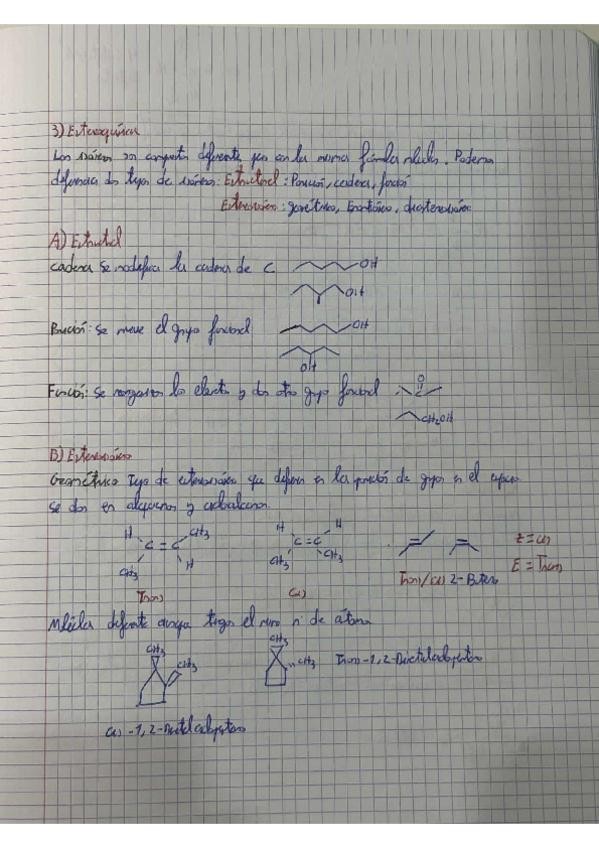 3) Estereoquímica
Los isómeros son compuestos diferentes pero con la misma fórmula molecular. Podemos
diferenciar dos tipos de isómeros: Estructural: Posición, cadena, función
Estereoisómero: geométrico, Enantiómero, diastereoisómero
A) Estructural
Cadena se modifica la cadena de C
OH
OH
Posición: se mueve el grupo funcional
OH
OH
Función: Se reorganizan los electrones y dan otro grupo funcional
O
C
CH2OH
B) Estereoisómero
Geométrico Tipo de estereoisómero que difieren en la posición de grupos en el espacio
Se dan en alquenos y cicloalcanos.
H CH3
C=C
CH3 H
Trans
H H
C=C
CH3 CH3
Cis
Trans/cis 2-Buteno
Z = cis
E = Trans
Moléculas diferentes aunque tengan el mismo nº de átomos
CH3
CH3
Cis-1,2-Dimetilciclopentano
CH3
CH3
Trans-1,2-Dimetilciclopentano